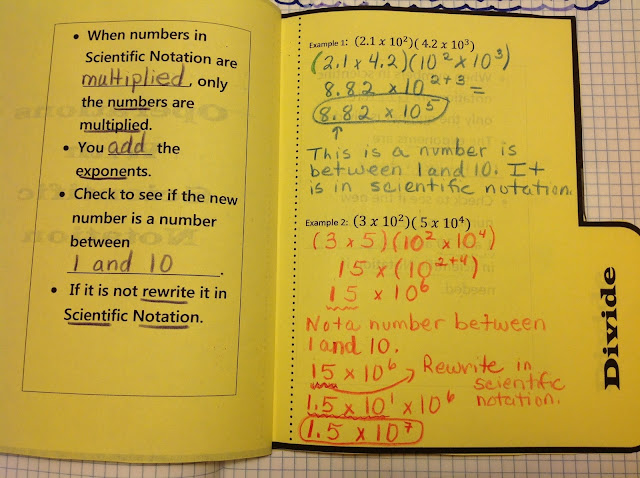 • When numbers in
Scientific Notation are
multiplied, only
the numbers are
multiplied.
• You add the
exponents.
• Check to see if the new
number is a number
between
1 and 10.
• If it is not rewrite it in
Scientific Notation.
Example 1: (2.1 x 10²)( 4.2 x 10³)
(2.1 x 4.2)(10² x 10³)
8.82 x 10²⁺³ =
8.82 x 10⁵
↑
This is a number is
between 1 and 10. It
is in scientific notation.
Example 2: (3 x 10²)( 5 x 10⁴)
(3 x 5)(10² x 10⁴)
15 x (10²⁺⁴)
15 x 10⁶
Not a number between
1 and 10.
15 x 10⁶ Rewrite in
scientific
1.5 x 10¹ x 10⁶ notation.
1.5 x 10⁷
Divide